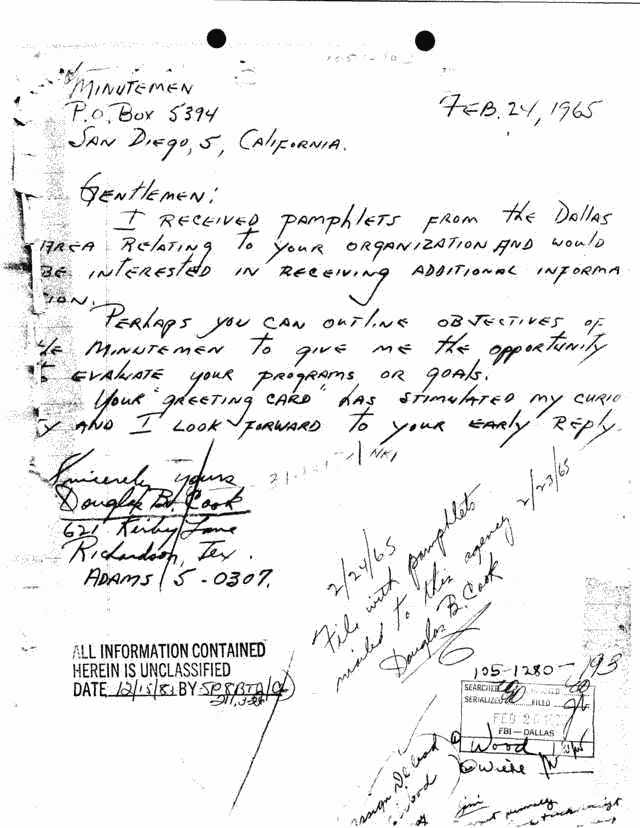 MINUTEMEN
P.O. BOX 5394
SAN DIEGO, 5, CALIFORNIA.
FEB. 24, 1965
GENTLEMEN:
I RECEIVED PAMPHLETS FROM THE DALLAS
AREA RELATING TO YOUR ORGANIZATION AND WOULD
BE INTERESTED IN RECEIVING ADDITIONAL INFORMA
ION.
PERHAPS YOU CAN OUTLINE OBJECTIVES OF
HE MINUTEMEN TO GIVE ME THE OPPORTUNITY
O EVALUATE YOUR PROGRAMS OR GOALS.
YOUR "GREETING CARD" HAS STIMULATED MY CURIO
Y AND I LOOK FORWARD TO YOUR EARLY REPLY.
Sincerely yours
Douglas B. Cook
621 Kirby Lane
Richardson, Tex.
ADAMS 5-0307.
2/24/65
File with pamphlets
mailed to this agency 2/23/65
Douglas B. Cook
ALL INFORMATION CONTAINED
HEREIN IS UNCLASSIFIED
DATE 12/15/81 BY
105-1280-193
SEARCHED
SERIALIZED FILED
FEB 26
FBI — DALLAS
Wood